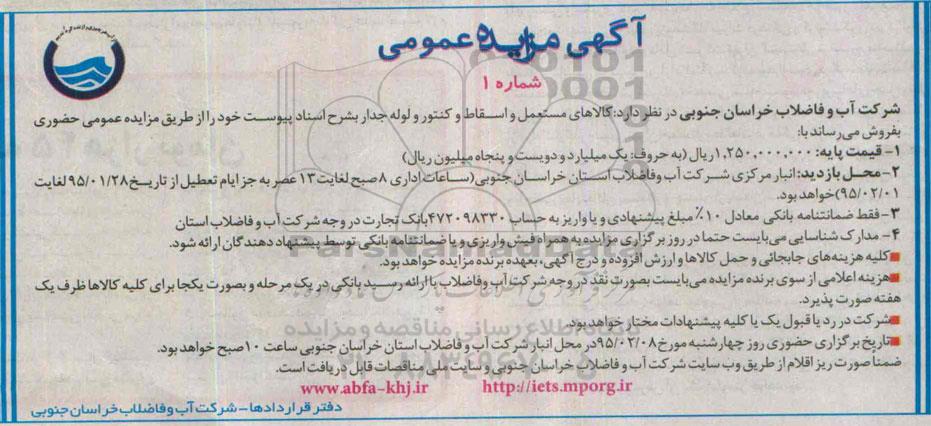 آگهی مزایده عمومی
شماره ۱
شرکت آب و فاضلاب خراسان جنوبی در نظر دارد: کالاهای مستعمل و اسقاط و کنتور و لوله جدار بشرح اسناد پیوست خود را از طریق مزایده عمومی حضوری
بفروش می‌رساند با:
۱- قیمت پایه: ۱,۲۵۰,۰۰۰,۰۰۰ ریال (به حروف: یک میلیارد و دویست و پنجاه میلیون ریال)
۲- محل بازدید: انبار مرکزی شرکت آب وفاضلاب استان خراسان جنوبی (ساعات اداری ۸ صبح لغایت ۱۳ عصر به جز ایام تعطیل از تاریخ ۹۵/۰۱/۲۸ لغایت
۹۵/۰۲/۰۱) خواهد بود.
۳- فقط ضمانتنامه بانکی معادل ۱۰٪ مبلغ پیشنهادی و یا واریز به حساب ۴۷۲۰۹۸۳۳۰ بانک تجارت در وجه شرکت آب و فاضلاب استان
۴- مدارک شناسایی می‌بایست حتما در روز برگزاری مزایده به همراه فیش واریزی و یا ضمانتنامه بانکی توسط پیشنهاد دهندگان ارائه شود.
■ کلیه هزینه‌های جابجائی و حمل کالاها و ارزش افزوده و درج آگهی، بعهده برنده مزایده خواهد بود.
■ هزینه اعلامی از سوی برنده مزایده می‌بایست بصورت نقد در وجه شرکت آب وفاضلاب با ارائه رسید بانکی در یک مرحله و بصورت یکجا برای کلیه کالاها ظرف یک
هفته صورت پذیرد.
■ شرکت در رد یا قبول یک یا کلیه پیشنهادات مختار خواهد بود.
■ تاریخ برگزاری حضوری روز چهارشنبه مورخ ۹۵/۰۲/۰۸ در محل انبار شرکت آب و فاضلاب استان خراسان جنوبی ساعت ۱۰ صبح خواهد بود.
ضمنا صورت ریز اقلام از طریق وب سایت شرکت آب و فاضلاب خراسان جنوبی و سایت ملی مناقصات قابل دریافت است.
http://iets.mporg.ir www.abfa-khj.ir
دفتر قراردادها - شرکت آب وفاضلاب خراسان جنوبی